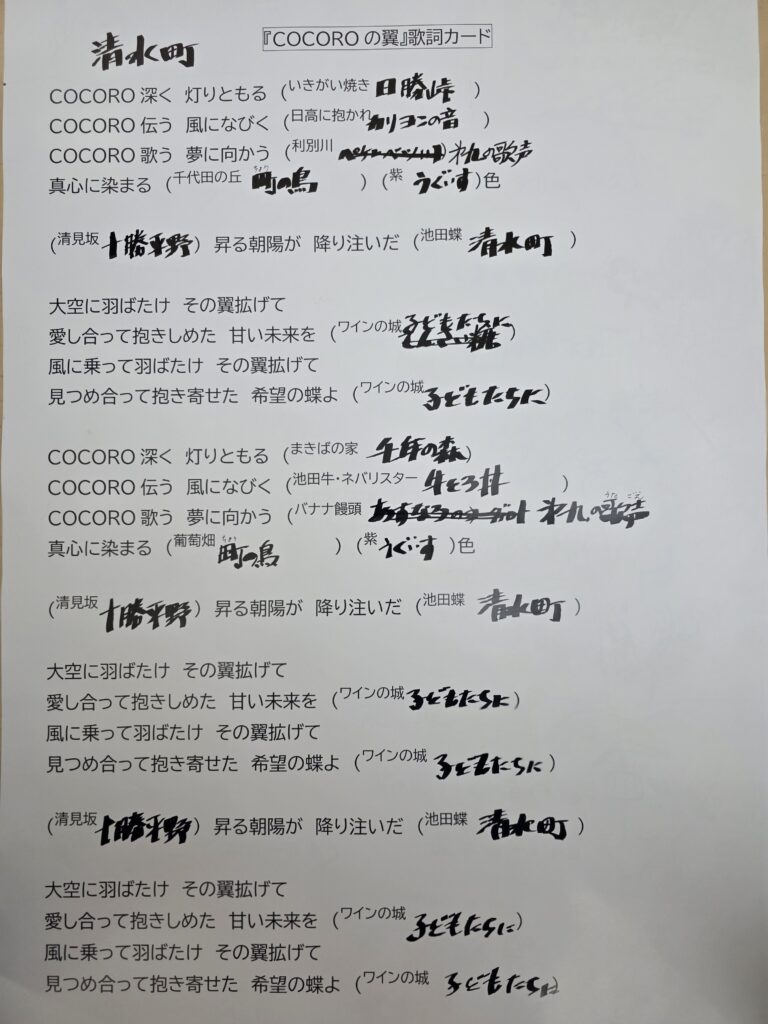 『COCOROの翼』歌詞カード
清水町
COCORO深く 灯りともる (いきがい焼き 日勝峠 )
COCORO伝う 風になびく (日高に抱かれ カリヨンの音 )
COCORO歌う 夢に向かう (利別川 ) 第九の歌声
真心に染まる (千代田の丘 町の鳥 ) (紫 うぐいす)色
(清見坂 十勝平野) 昇る朝陽が 降り注いだ (池田蝶 清水町 )
大空に羽ばたけ その翼拡げて
愛し合って抱きしめた 甘い未来を (ワインの城 子どもたちに)
風に乗って羽ばたけ その翼拡げて
見つめ合って抱き寄せた 希望の蝶よ (ワインの城 子どもたちに)
COCORO深く 灯りともる (まきばの家 千年の森)
COCORO伝う 風になびく (池田牛・ネバリスター 牛とろ丼 )
COCORO歌う 夢に向かう (バナナ饅頭 第九の歌声
真心に染まる (葡萄畑 町の鳥 ) (紫 うぐいす )色
(清見坂 十勝平野) 昇る朝陽が 降り注いだ (池田蝶 清水町 )
大空に羽ばたけ その翼拡げて
愛し合って抱きしめた 甘い未来を (ワインの城 子どもたちに)
風に乗って羽ばたけ その翼拡げて
見つめ合って抱き寄せた 希望の蝶よ (ワインの城 子どもたちに )
(清見坂 十勝平野) 昇る朝陽が 降り注いだ (池田蝶 清水町 )
大空に羽ばたけ その翼拡げて
愛し合って抱きしめた 甘い未来を (ワインの城 子どもたちに)
風に乗って羽ばたけ その翼拡げて
見つめ合って抱き寄せた 希望の蝶よ (ワインの城 子どもたちに)